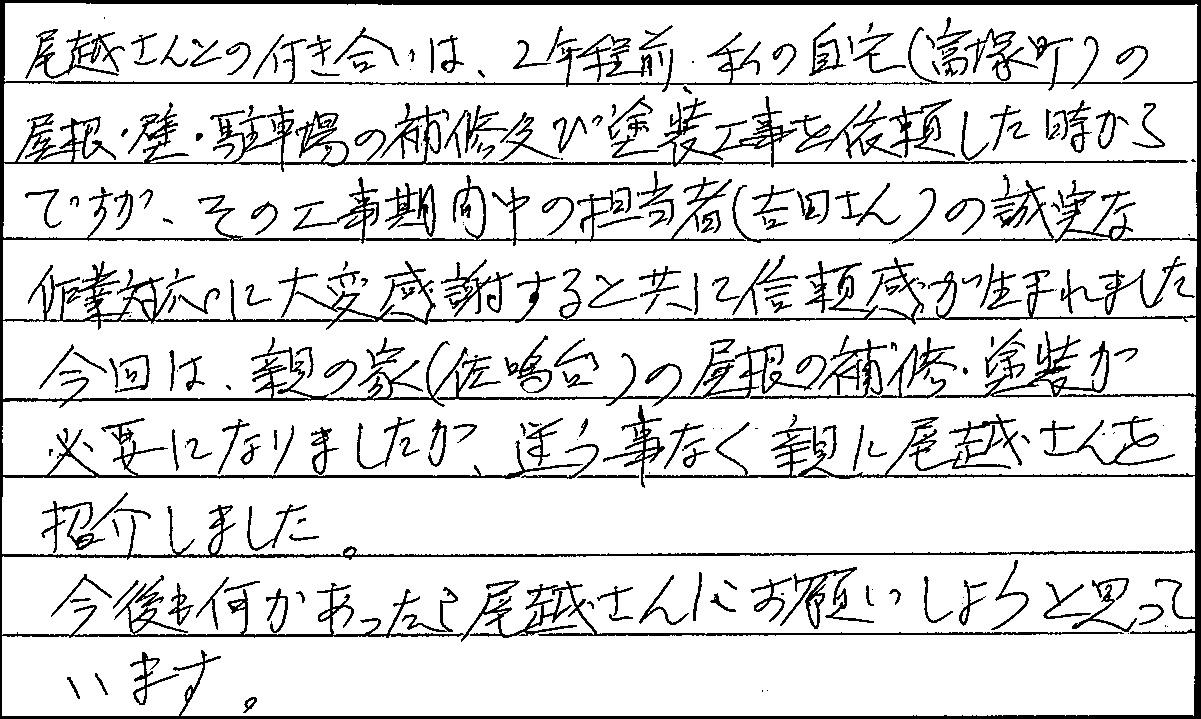 尾越さんとの付き合いは、2年程前、私の自宅(高塚町)の
屋根・壁・駐車場の補修及び塗装工事を依頼した時から
ですが、その工事期間中の担当者(吉田さん)の誠実な
作業対応に大変感謝すると共に信頼感が生まれました
今回は、親の家(佐鳴台)の屋根の補修・塗装が
必要になりましたが、迷う事なく親に尾越さんを
紹介しました。
今後も何かあったら尾越さんにお願いしようと思って
います。